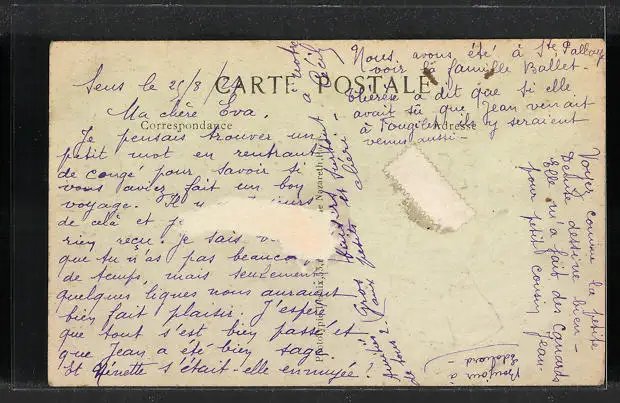 Sens le 25/8/
CARTE POSTALE
Correspondance
Adresse
Ma chère Eva.
Je pensais trouver un
petit mot en rentrant
de congé pour savoir si
vous aviez fait un bon
voyage. Il y
de celà et
rien reçu. Je sais
que tu n'as pas beaucou
de temps, mais seulement
quelques lignes nous auraient
bien fait plaisir. J'espère
que tout s'est bien passé et
que Jean a été bien sage.
Et Ninette s'était-elle ennuyée!
Gros baisers
petits et chéri
à notre
Nazareth
Nous avons été à Ste Pallaye
voir la famille Ballet-
Thérèse a dit que si elle
avait sû que Jean venait
à ils y seraient
venus aussi-
Voyez comme la petite
Denise dessine bien-
Elle m'a fait des canards
pour petit cousin Jean.
Bonjour à
Edouard-